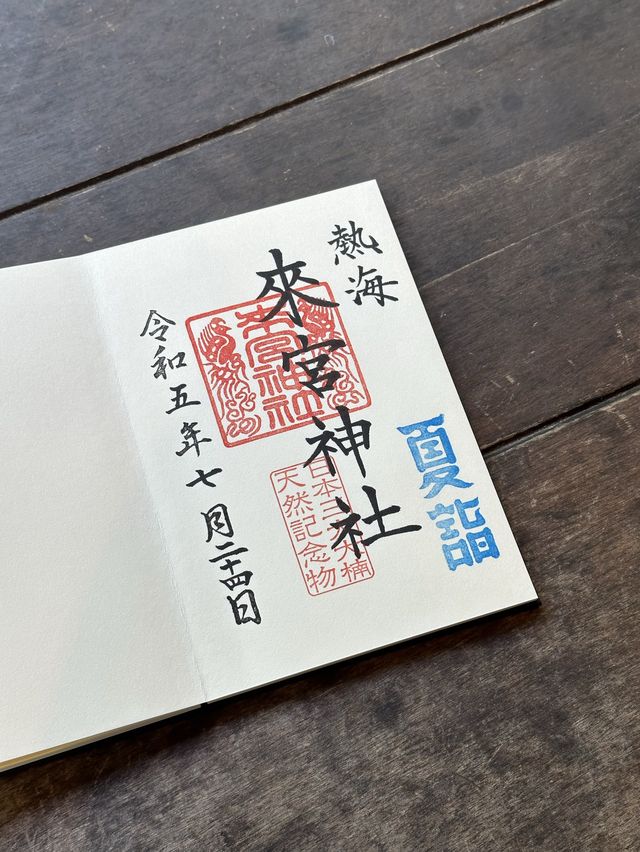 夏詣
熱海
來宮神社
来宮神社
日本三大楠
天然記念物
令和五年七月二十四日